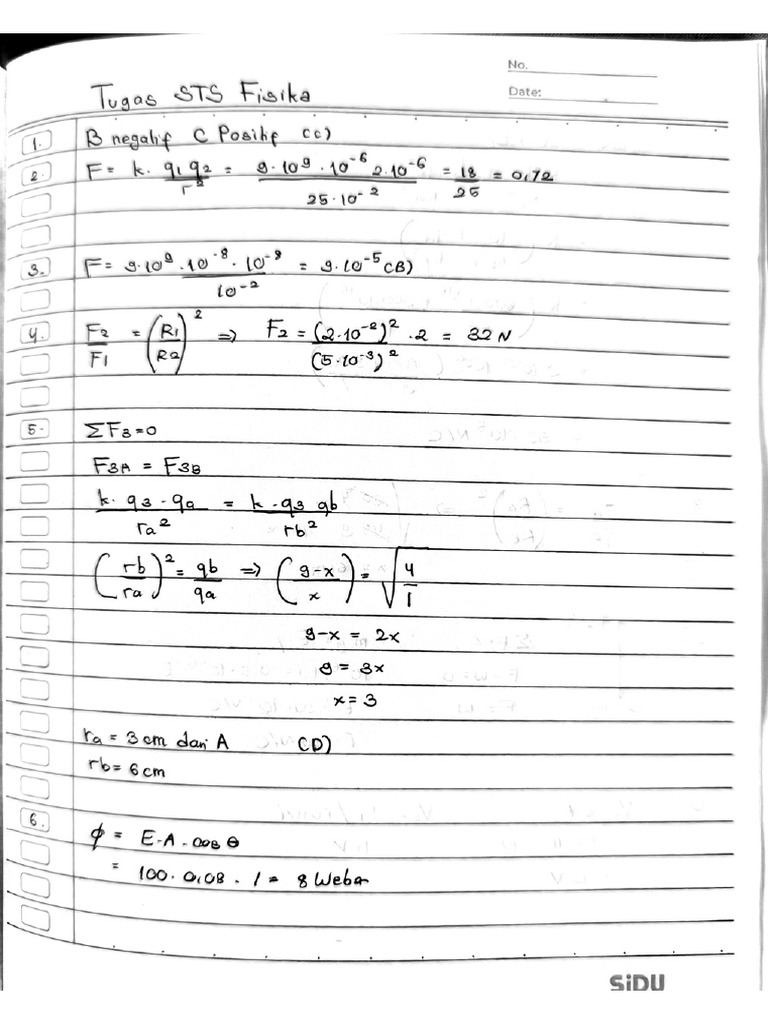 No.
Date:
Tugas STS Fisika
1. B negatif C Positif (C)
2. F = k. q1 q2 / r² = 9·10⁹·10⁻⁶ 2·10⁻⁶ / 25·10⁻² = 18/25 = 0,72
3. F = 9·10⁹·10⁻⁸·10⁻⁸ / 10⁻² = 9·10⁻⁵ (B)
4. F2/F1 = (R1/R2)² => F2 = (2·10⁻²)² · 2 / (5·10⁻³)² = 32 N
5. ΣF3=0
F3A = F3B
k. q3 · qa / ra² = k. q3 qb / rb²
(rb/ra)² = qb/qa => (9-x / x) = √4/1
9-x = 2x
9 = 3x
x = 3
ra = 3 cm dari A (D)
rb = 6 cm
6. ϕ = E·A·cos θ
= 100·0,08·1 = 8 Weber
SiDU